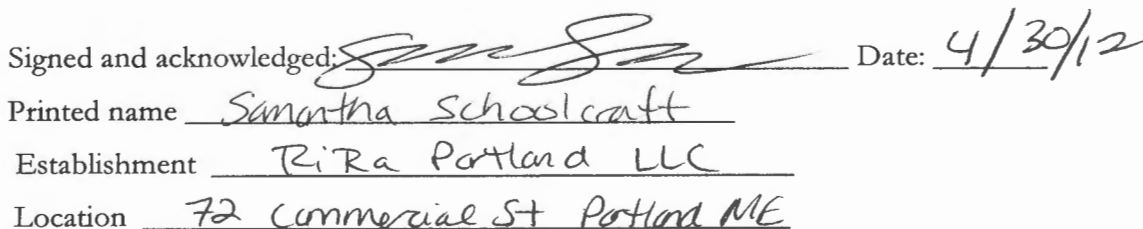 Signed and acknowledged: Date: 4/30/12
Printed name Samantha Schoolcraft
Establishment RiRa Portland LLC
Location 72 Commercial St Portland ME